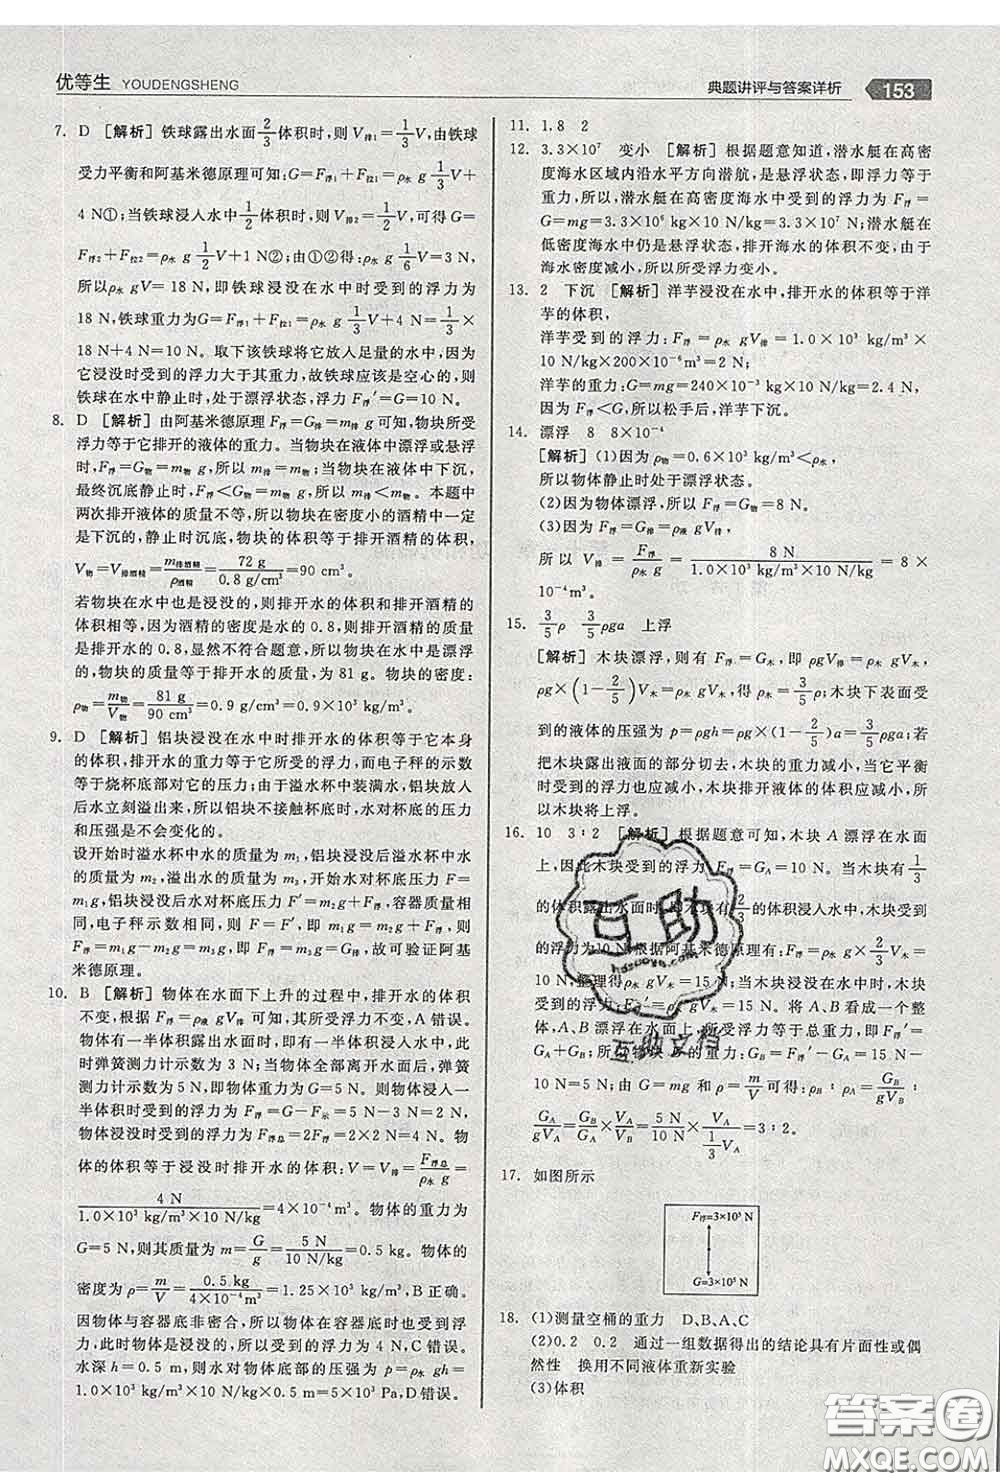 优等生 YOUDENGSHENG
典题讲评与答案详析 153
7. D [解析]铁球露出水面2/3体积时,则V排1=1/3V,由铁球
受力平衡和阿基米德原理可知:G=F浮1+F拉1=ρ水 g 1/3V
+4 N①;当铁球浸入水中1/2体积时,V排2=1/2V,可得G=
F浮2+F拉2=ρ水 g 1/2V+1 N②;由①②得:ρ水 g 1/6V=3 N,
所以ρ水 gV=18 N,即铁球浸没在水中时受到的浮力为
18 N,铁球重力为G=F浮1+F拉1=ρ水 g 1/3V+4 N=1/3×
18 N+4 N=10 N。取下该铁球将它放入足量的水中,因
它浸没时受到的浮力大于其重力,故铁球应该是空心的,则
铁球在水中静止时,处于漂浮状态,浮力F浮′=G=10 N。
8. D [解析]由阿基米德原理F浮=G排=m排 g可知:物块所受
浮力等于它排开的液体的重力。当物块在液体中漂浮或悬浮
时,F浮=G物=m物 g,所以m排=m物;当物块在液体中下沉,
最终沉底静止时,F浮<G物=m物 g,所以m排<m物。本题中
两次排开液体的质量不等,所以物块在密度小的酒精中一定
是下沉的,静止时沉底,物块的体积等于排开酒精的体积,
V物=V排酒精=m排酒精/ρ酒精=72 g/0.8 g/cm³=90 cm³。
若物块在水中也是浸没的,则排开水的体积和排开酒精的
体积相等,因为酒精的密度是水的0.8,则排开酒精的质量
是排开水的0.8,显然不符合题意,所以物块在水中是漂浮
的,物块的质量等于排开水的质量,为81 g。物块的密度:
ρ物=m物/V物=81 g/90 cm³=0.9 g/cm³=0.9×10³ kg/m³。
9. D [解析]铝块浸没在水中时排开水的体积等于它本身
的体积,而排开水的重力等于它所受的浮力,而电子秤的示数
等于烧杯底部对它的压力;由于溢水杯中装满水,铝块浸没以
后水立刻溢出来,所以铝块不接触杯底时,水对杯底的压力
和压强是不会变化的。
设开始时溢水杯中水的质量为m1,铝块浸没后溢水杯中水
的质量为m2,溢出水的质量为m3,开始时水对杯底压力F=
m1g,铝块浸没后水对杯底压力F′=m2g+F浮,容器质量相
同,电子秤示数相同,所以F=F′,即m1g=m2g+F浮,所以
F浮=m1g-m2g,即F浮=m3g=G排,故可验证阿基
米德原理。
10. B [解析]物体在水面下上升的过程中,排开水的体积
不变,根据F浮=ρ液 gV排可知,其所受浮力不变,A错误。
物体有一半体积露出水面时,即有一半体积浸在水中,此
时弹簧测力计示数为3 N;当物体全部离开水面后,弹簧
测力计示数为5 N,即物体重力为G=5 N。则物体浸入一
半体积时受到的浮力为F浮=G-F示=5 N-3 N=2 N,
浸没时受到的浮力为F浮总=2F浮=2×2 N=4 N。物体
的体积等于浸没时排开水的体积:V物=V排=F浮总/ρ水 g=
4 N/1.0×10³ kg/m³×10 N/kg=4×10⁻⁴ m³。物体的重力为
G=5 N,则其质量为m=G/g=5 N/10 N/kg=0.5 kg。物体的
密度为ρ=m/V=0.5 kg/4×10⁻⁴ m³=1.25×10³ kg/m³,B正确。
因为物体与容器底非密合,所以物体在水中受到浮力作
用,此时物体是浸没的,所以受到的浮力为4 N,C错误。
水深h=0.5 m,则水对物体底部的压强为p=ρ水 gh=
1.0×10³ kg/m³×10 N/kg×0.5 m=5×10³ Pa,D错误。
11. 1.8 2
12. 3.3×10⁷ 变小 [解析]根据题意知道,潜水艇在高密
度海水区域内沿水平方向潜航,是悬浮状态,即浮力等于
重力,所以,潜水艇在高密度海水中受到的浮力为F浮=
G=mg=3.3×10⁶ kg×10 N/kg=3.3×10⁷ N;潜水艇在
低密度海水中仍是悬浮状态,排开海水的体积不变,由于
海水密度减小,所以所受浮力变小。
13. 2 下沉 [解析]洋芋浸没在水中,排开水的体积等于洋
芋的体积,
洋芋受到的浮力:F浮=ρ水 gV排=1.0×10³ kg/m³×
10 N/kg×200×10⁻⁶m³=2 N;
洋芋的重力:G=mg=240×10⁻³ kg×10 N/kg=2.4 N,
因为F浮<G,所以松手后,洋芋下沉。
14. 漂浮 8 8×10⁻⁴
[解析](1)因为ρ物=0.6×10³ kg/m³<ρ水,
所以物体静止时处于漂浮状态。
(2)因为物体漂浮,所以F浮=G物=8 N。
(3)因为F浮=G排=ρ液 gV排,
所以V排=F浮/ρ水 g=8 N/1.0×10³ kg/m³×10 N/kg=8×
10⁻⁴m³。
15. 3/5ρ 3/5ρga 上浮
[解析]木块漂浮,则有F浮=G木,即ρgV排=ρ木 gV木,
ρg×(1-2/5)V木=ρ木 gV木,得ρ木=3/5ρ;木块下表面受
到的液体的压强为p=ρgh=ρg×(1-2/5)a=3/5ρga;若
把木块露出液面的部分切去,木块的重力减小,平衡时
受到的浮力也应减小,木块排开液体的体积应减小,所
以木块将上浮。
16. 10 3:2 [解析]根据题意可知,木块A漂浮在水面
上,因此木块受到的浮力F浮=GA=10 N。当木块有1/3
的体积露出水面时,木块有2/3的体积浸入水中,木块受到
的浮力为10 N,根据阿基米德原理有:F浮=ρ水 g×2/3V木=
10 N,整理得ρ水 gV木=15 N;当木块浸没在水中时,木块
受到的浮力F浮′=ρ水 gV木=15 N。将A、B看成一个整
体,A、B悬浮在水中,浮力等于总重力,即F浮′=
GA+GB,所以物块B的重力:GB=F浮′-GA=15 N-
10 N=5 N;由G=mg和ρ=m/V可得:ρB:ρA=GB/gVB:
GA/gVA=GB/GA×VA/VB=5 N/10 N×VA/(1/3VA)=3:2。
17. 如图所示
F浮=3×10⁵ N
G=3×10⁵ N
18. (1)测量空桶的重力 D、B、A、C
(2)0.2 0.2 通过一组数据得出的结论具有片面性或偶
然性 换用不同液体重新实验
(3)体积
互助
互助文档
答案圈
MXQE.COM